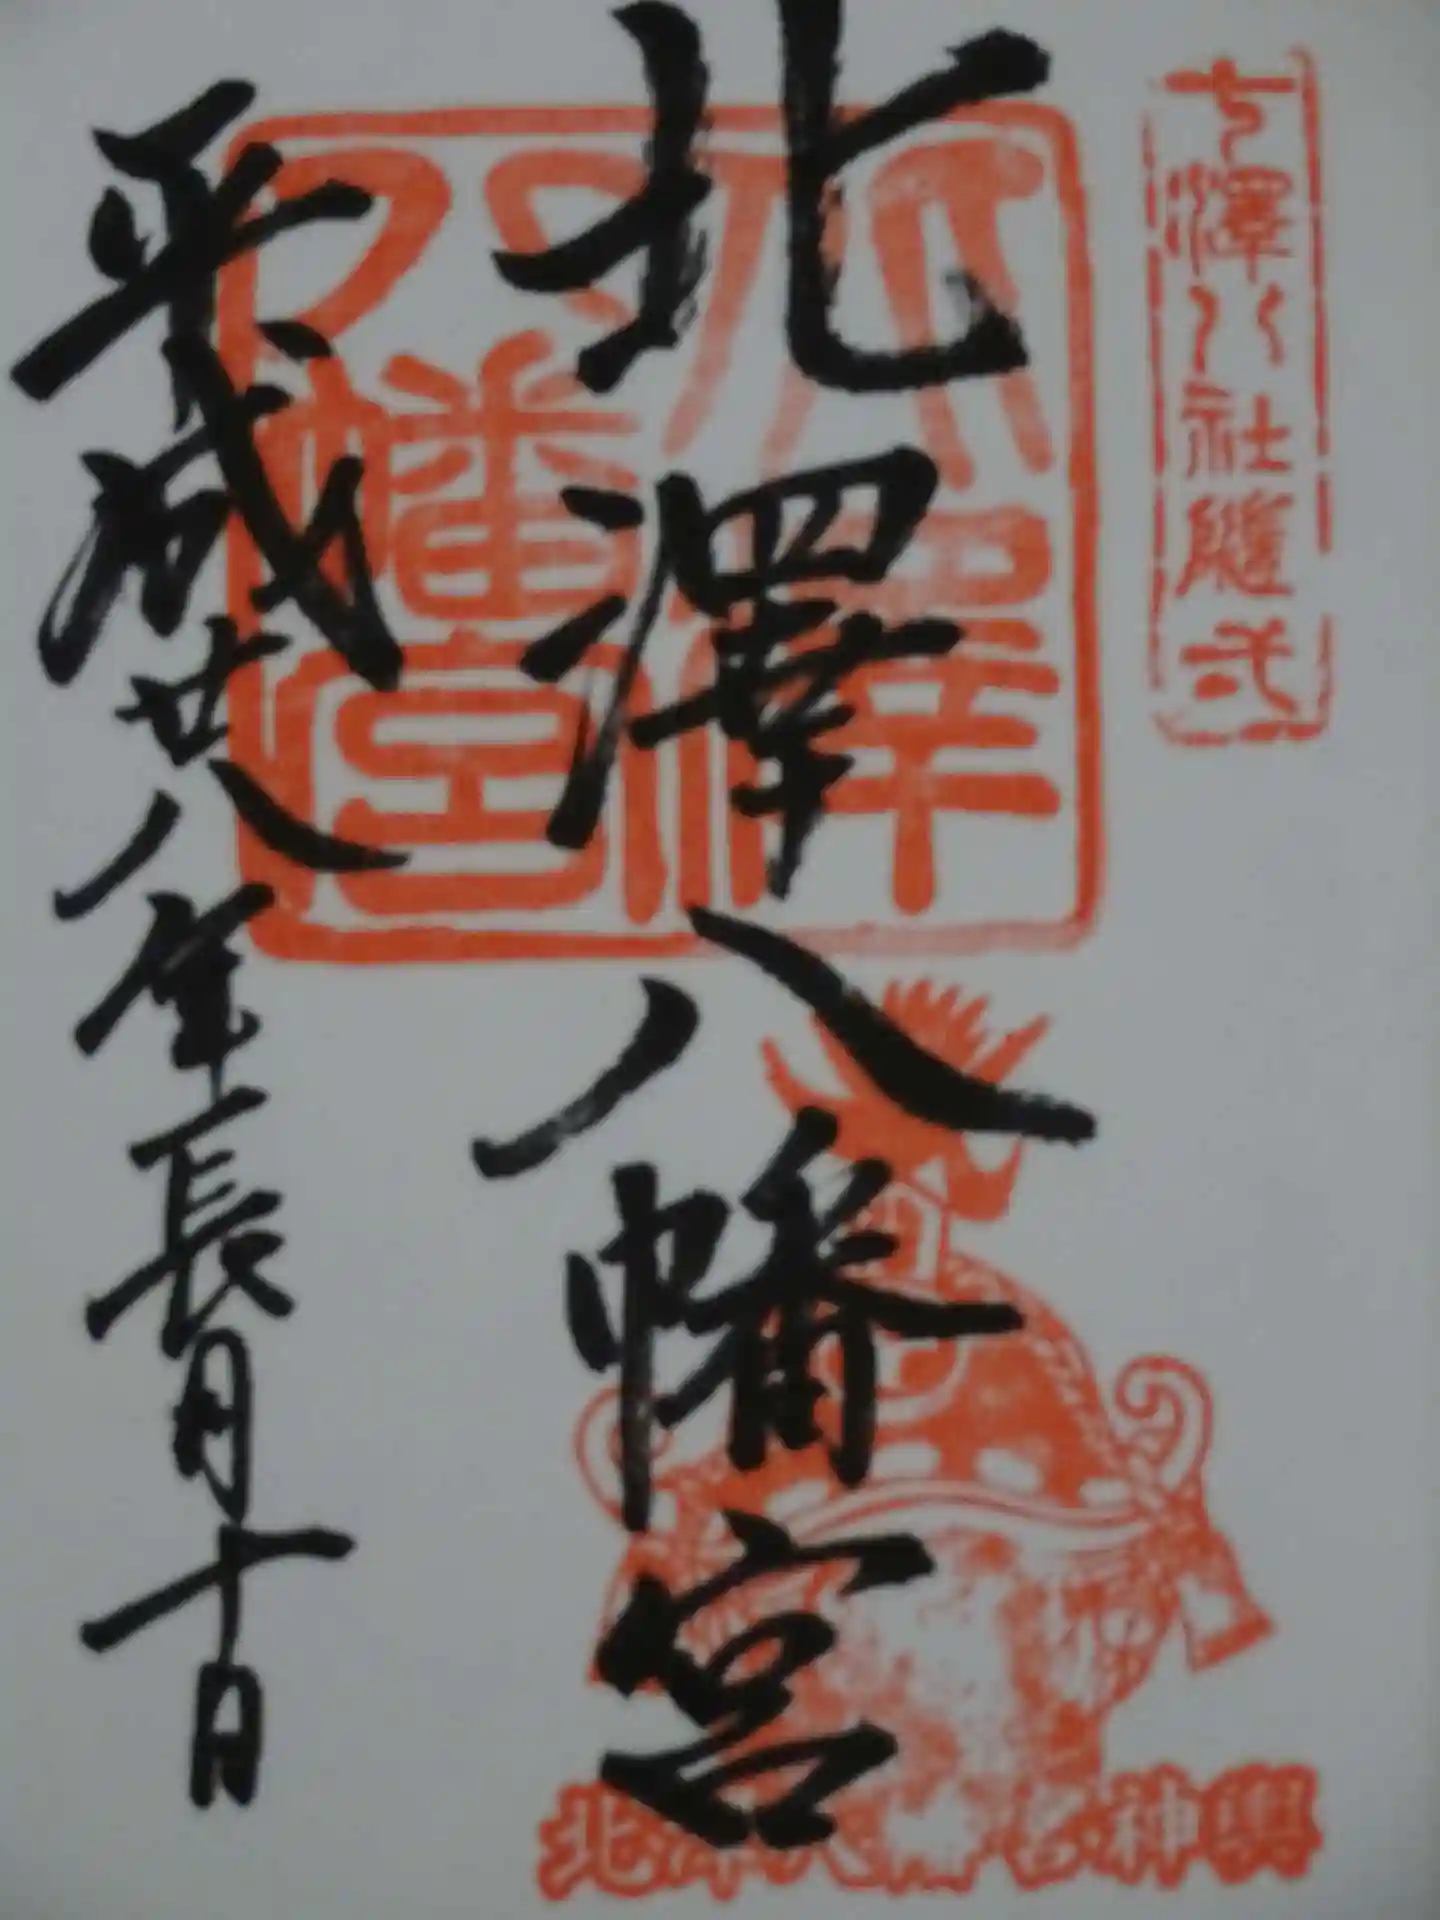 七澤八社隨弌
北澤八幡宮
北澤
八幡宮
平成廿八年長月十日
北澤八幡宮神輿